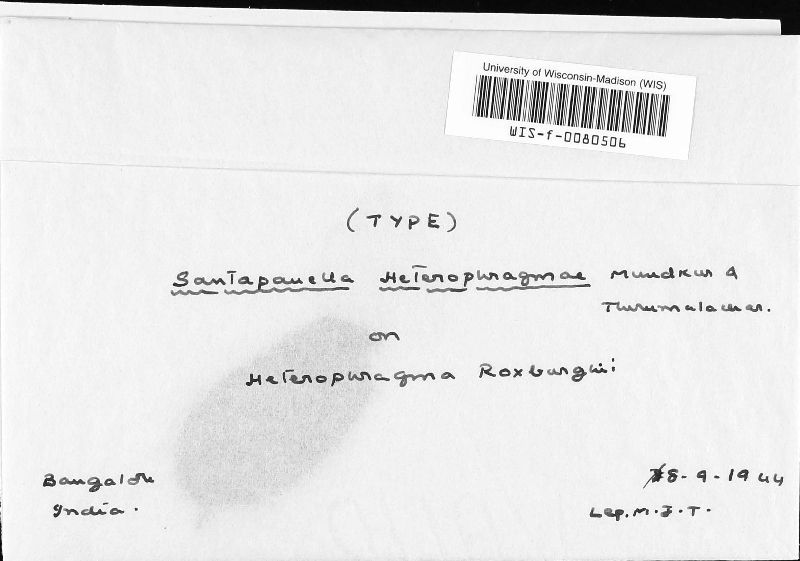 University of Wisconsin-Madison (WIS)
WIS-f-0080506
(TYPE)
Santapauella Heterophragmae Mundkur &
Thirumalachar.
on
Heterophragma Roxburghii
Bangalore
India.
8-9-1944
Leg. M.J.T.